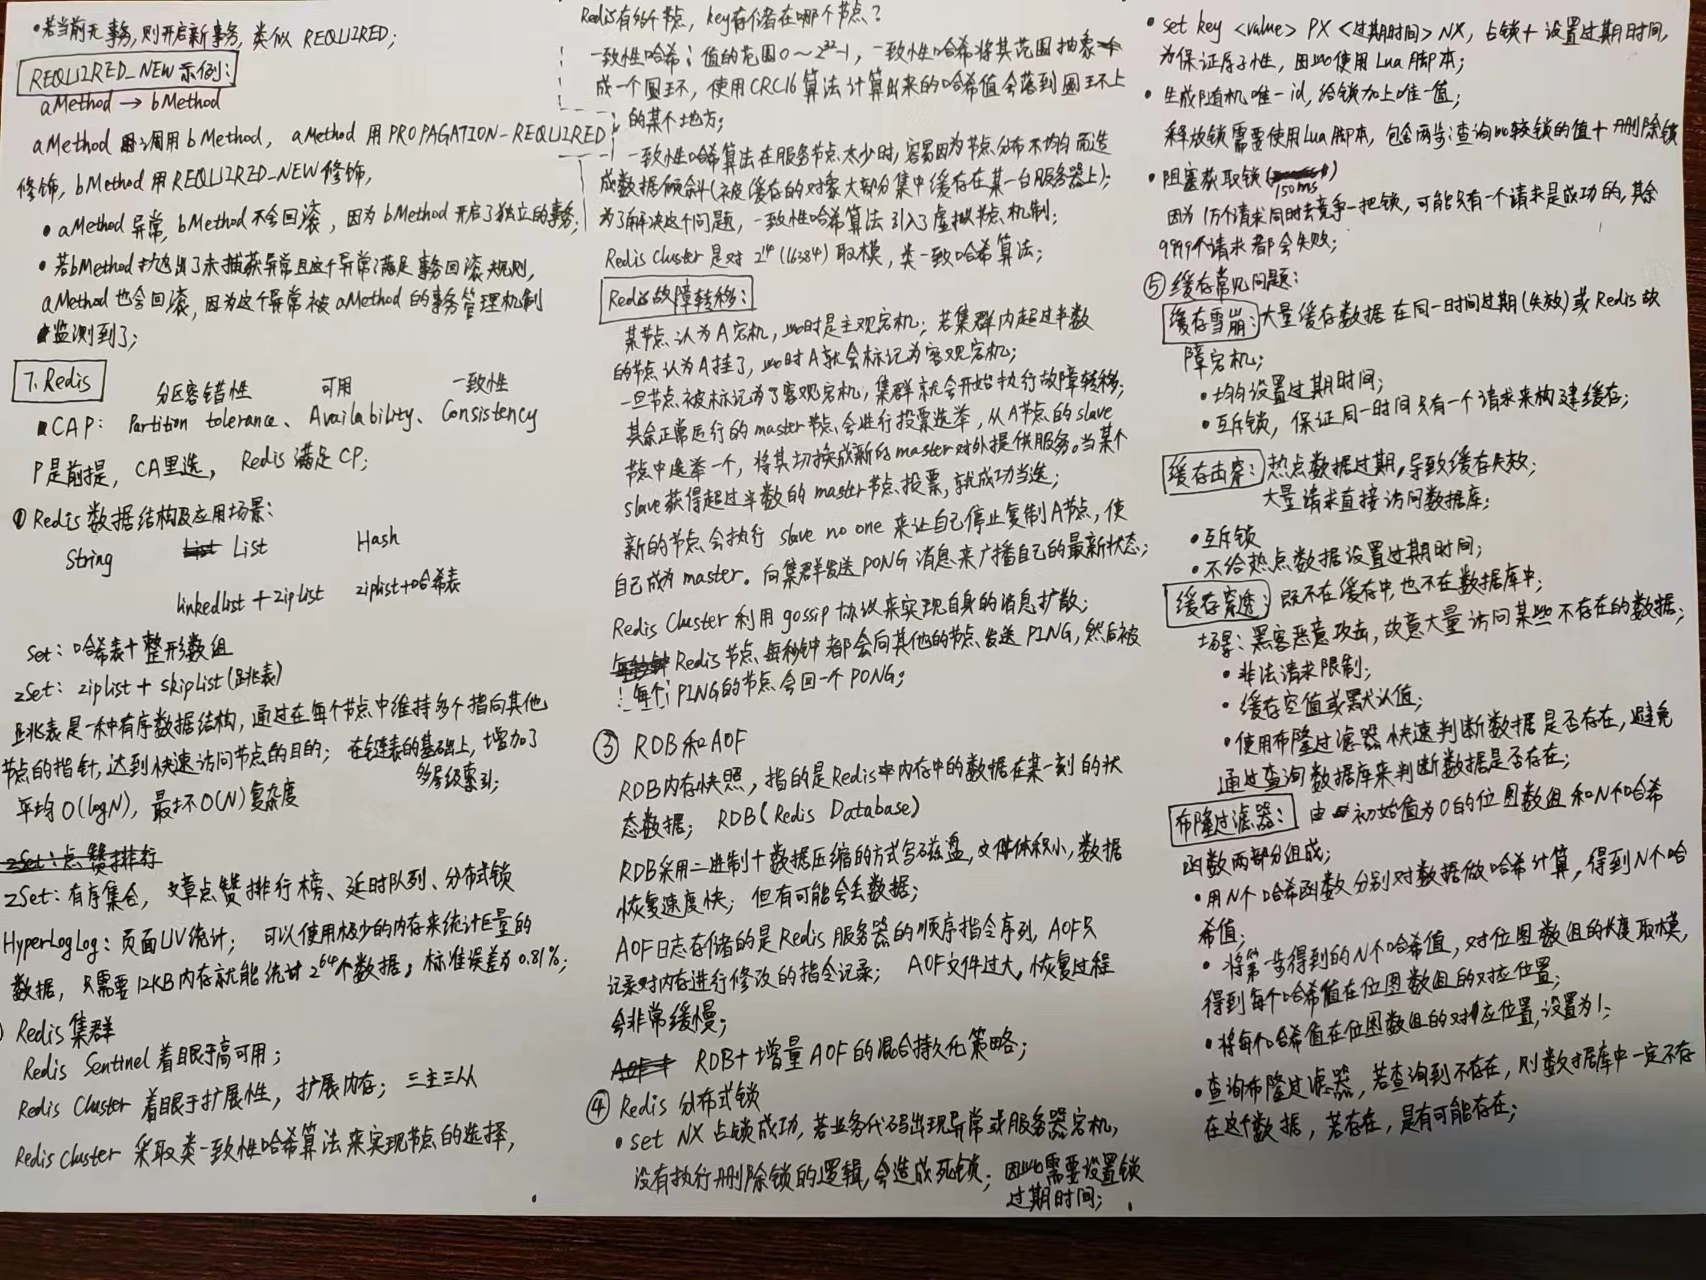 •若当前无事务,则开启新事务,类似 REQUIRED;
REQUIRED_NEW示例:
aMethod → bMethod
aMethod 调用 bMethod, aMethod 用 PROPAGATION-REQUIRED
修饰, bMethod 用REQUIRED_NEW修饰,
• aMethod 异常, bMethod 不会回滚, 因为 bMethod 开启了独立的事务;
• 若bMethod 抛出了未捕获异常且这个异常满足事务回滚规则,
aMethod 也会回滚, 因为这个异常被 aMethod 的事务管理机制
监测到了;
7. Redis
分区容错性 可用 一致性
CAP: Partition tolerance、Availability、Consistency
P是前提, CA里选, Redis 满足CP;
① Redis 数据结构及应用场景:
String List Hash
linkedlist + ziplist ziplist+哈希表
Set: 哈希表+整形数组
zSet: ziplist + skiplist(跳表)
跳表是一种有序数据结构, 通过在每个节点中维持多个指向其他
节点的指针, 达到快速访问节点的目的; 在链表的基础上, 增加了
多层级索引;
平均 O(logN), 最坏 O(N) 复杂度
zSet: 点赞排行
zSet: 有序集合, 文章点赞排行榜、延时队列、分布式锁
HyperLogLog: 页面UV统计; 可以使用极少的内存来统计巨量的
数据, 只需要12KB内存就能统计2^64个数据, 标准误差为0.81%;
Redis 集群
Redis Sentinel 着眼于高可用;
Redis Cluster 着眼于扩展性, 扩展内存; 三主三从
Redis cluster 采取类一致性哈希算法来实现节点的选择,
Redis有多个节点, key存储在哪个节点?
一致性哈希: 值的范围0~2^32-1, 一致性哈希将其范围抽象
成一个圆环, 使用CRC16算法计算出来的哈希值会落到圆环上
的某个地方;
一致性哈希算法在服务节点太少时, 容易因为节点分布不均匀而造
成数据倾斜(被缓存的对象大部分集中缓存在某一台服务器上);
为了解决这个问题, 一致性哈希算法引入了虚拟节点机制;
Redis Cluster 是对 2^14 (16384) 取模, 类一致哈希算法;
Redis故障转移:
某节点认为A宕机, 此时是主观宕机; 若集群内超过半数
的节点认为A挂了, 此时A就会标记为客观宕机;
一旦节点被标记为了客观宕机, 集群就会开始执行故障转移;
其余正常运行的master节点会进行投票选举, 从A节点的slave
节中选举一个, 将其切换成新的master对外提供服务。当某个
slave获得超过半数的master节点投票, 就成功当选;
新的节点会执行 slave no one 来让自己停止复制A节点, 使
自己成为master。向集群发送PONG消息来广播自己的最新状态;
Redis Cluster 利用 gossip 协议来实现自身的消息扩散;
每秒钟 Redis 节点每秒钟都会向其他的节点发送PING, 然后被
每个PING的节点会回一个PONG;
③ RDB和AOF
RDB内存快照, 指的是Redis中内存中的数据在某一刻的状
态数据; RDB(Redis Database)
RDB采用二进制+数据压缩的方式写磁盘, 文件体积小, 数据
恢复速度快; 但有可能会丢数据;
AOF日志存储的是Redis服务器的顺序指令序列, AOF只
记录对内存进行修改的指令记录; AOF文件过大, 恢复过程
会非常缓慢;
AOF+ RDB+增量AOF的混合持久化策略;
④ Redis 分布式锁
• set NX 占锁成功, 若业务代码出现异常或服务器宕机,
没有执行删除锁的逻辑, 会造成死锁; 因此需要设置锁
过期时间;
• set key <value> PX <过期时间> NX, 占锁+设置过期时间,
为保证原子性, 因此使用Lua脚本;
• 生成随机唯一id, 给锁加上唯一值;
释放锁需要使用Lua脚本, 包含两步:查询比较锁的值+删除锁
• 阻塞获取锁(150ms)
因为1万个请求同时去竞争一把锁, 可能只有一个请求是成功的, 其余
9999个请求都会失败;
⑤ 缓存常见问题:
缓存雪崩: 大量缓存数据在同一时间过期(失效)或Redis故
障宕机;
• 均匀设置过期时间;
• 互斥锁, 保证同一时间只有一个请求来构建缓存;
缓存击穿: 热点数据过期, 导致缓存失效;
大量请求直接访问数据库;
• 互斥锁
• 不给热点数据设置过期时间;
缓存穿透: 既不在缓存中, 也不在数据库中;
场景: 黑客恶意攻击, 故意大量访问某些不存在的数据;
• 非法请求限制;
• 缓存空值或默认值;
• 使用布隆过滤器快速判断数据是否存在, 避免
通过查询数据库来判断数据是否存在;
布隆过滤器: 由初始值为0的位图数组和N个哈希
函数两部分组成;
• 用N个哈希函数分别对数据做哈希计算, 得到N个哈
希值;
• 将第一步得到的N个哈希值, 对位图数组的长度取模,
得到每个哈希值在位图数组的对应位置;
• 将每个哈希值在位图数组的对应位置, 设置为1;
• 查询布隆过滤器, 若查询到不存在, 则数据库中一定不存
在这个数据, 若存在, 是有可能存在;